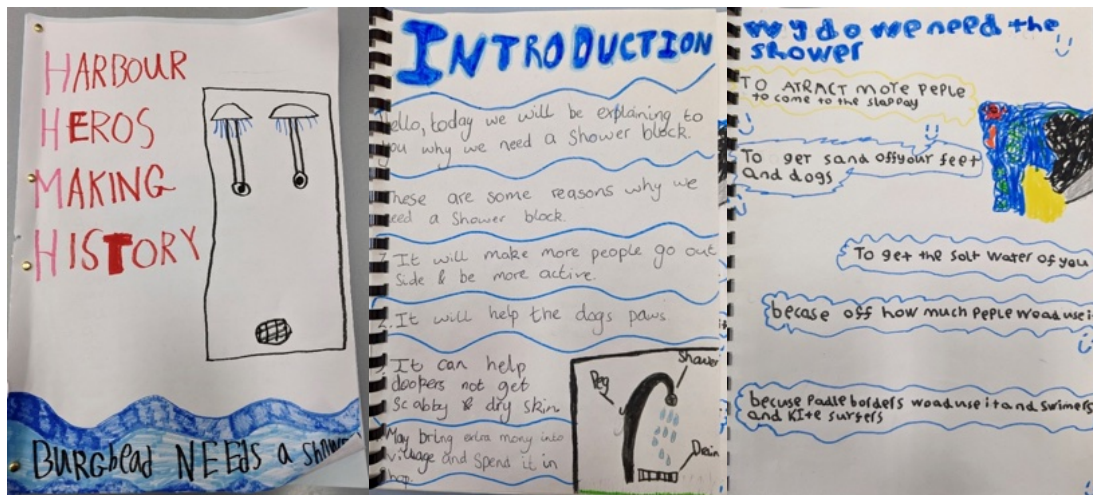 HARBOUR
HEROS
MAKING
HISTORY
BURGhead NEEDs a
INTRODUCTION
Hello, today we will be explaining to
you why we need a Shower block.
These are some reasons why we
need a Shower block.
1. It will make more people go out
side & be more active.
2. It will help the dogs paws
3. It can help
doopers not get
scabby & dry skin
May bring extra mony into
village and spens it in
Shower
Peg
Drain
Wy do we need the
shower
TO ATRACT more peple
to come to the slappay
To ger sand off your feet
and dogs
To get the solt water of you
becase off how much peple woad use it
becuse Padle borders woad use it and swimers
and kite surfers